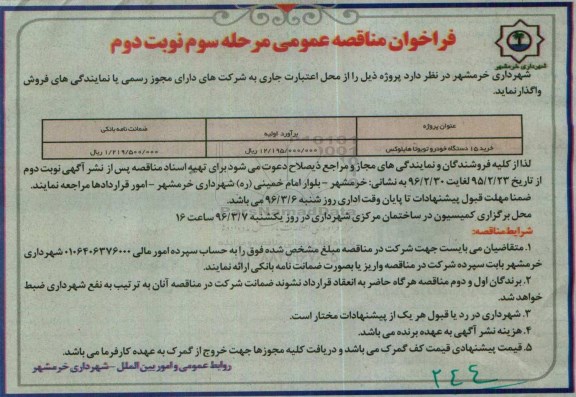 فراخوان مناقصه عمومی مرحله سوم نوبت دوم
شهرداری خرمشهر
شهرداری خرمشهر در نظر دارد پروژه ذیل را از محل اعتبارت جاری به شرکت های دارای مجوز رسمی یا نمایندگی های فروش
واگذار نماید.
عنوان پروژه	برآورد اولیه	ضمانت نامه بانکی
خرید ۱۵ دستگاه خودرو تویوتا هایلوکس	۱۲/۱۹۵/۰۰۰/۰۰۰ ریال	۱/۲۱۹/۵۰۰/۰۰۰ ریال
لذا از کلیه فروشندگان و نمایندگی های مجاز و مراجع ذیصلاح دعوت می شود برای تهیه اسناد مناقصه پس از نشر آگهی نوبت دوم
از تاریخ ۹۵/۲/۲۳ لغایت ۹۶/۲/۳۰ به نشانی: خرمشهر - بلوار امام خمینی (ره) شهرداری خرمشهر - امور قراردادها مراجعه نمایند.
ضمنا مهلت قبول پیشنهادات تا پایان وقت اداری روز شنبه ۹۶/۳/۶ می باشد.
محل برگزاری کمیسیون در ساختمان مرکزی شهرداری در روز یکشنبه ۹۶/۳/۷ ساعت ۱۶
شرایط مناقصه:
۱. متقاضیان می بایست جهت شرکت در مناقصه مبلغ مشخص شده فوق را به حساب سپرده امور مالی ۰۱۰۶۴۰۶۳۷۶۰۰۰ شهرداری
خرمشهر بابت سپرده شرکت در مناقصه واریز یا بصورت ضمانت نامه بانکی ارائه نمایند.
۲. برندگان اول و دوم مناقصه هر گاه حاضر به انعقاد قرارداد نشوند ضمانت شرکت در مناقصه آنان به ترتیب به نفع شهرداری ضبط
خواهد شد.
۳. شهرداری در رد یا قبول هر یک از پیشنهادات مختار است.
۴. هزینه نشر آگهی به عهده برنده می باشد.
۵. قیمت پیشنهادی قیمت کف گمرک می باشد و دریافت کلیه مجوزها جهت خروج از گمرک به عهده کارفرما می باشد.
روابط عمومی و امور بین الملل - شهرداری خرمشهر
۲۴۴